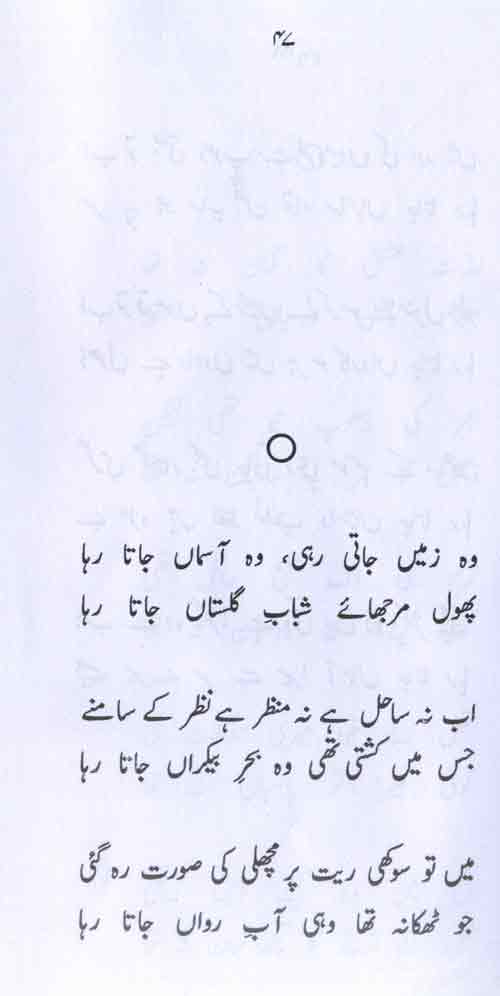 ۴۷
وہ زمیں جاتی رہی، وہ آسماں جاتا رہا
پھول مرجھائے شبابِ گلستاں جاتا رہا
اب نہ ساحل ہے نہ منظر ہے نظر کے سامنے
جس میں کشتی تھی وہ بحرِ بیکراں جاتا رہا
میں تو سوکھی ریت پر مچھلی کی صورت رہ گئی
جو ٹھکانہ تھا وہی آبِ رواں جاتا رہا